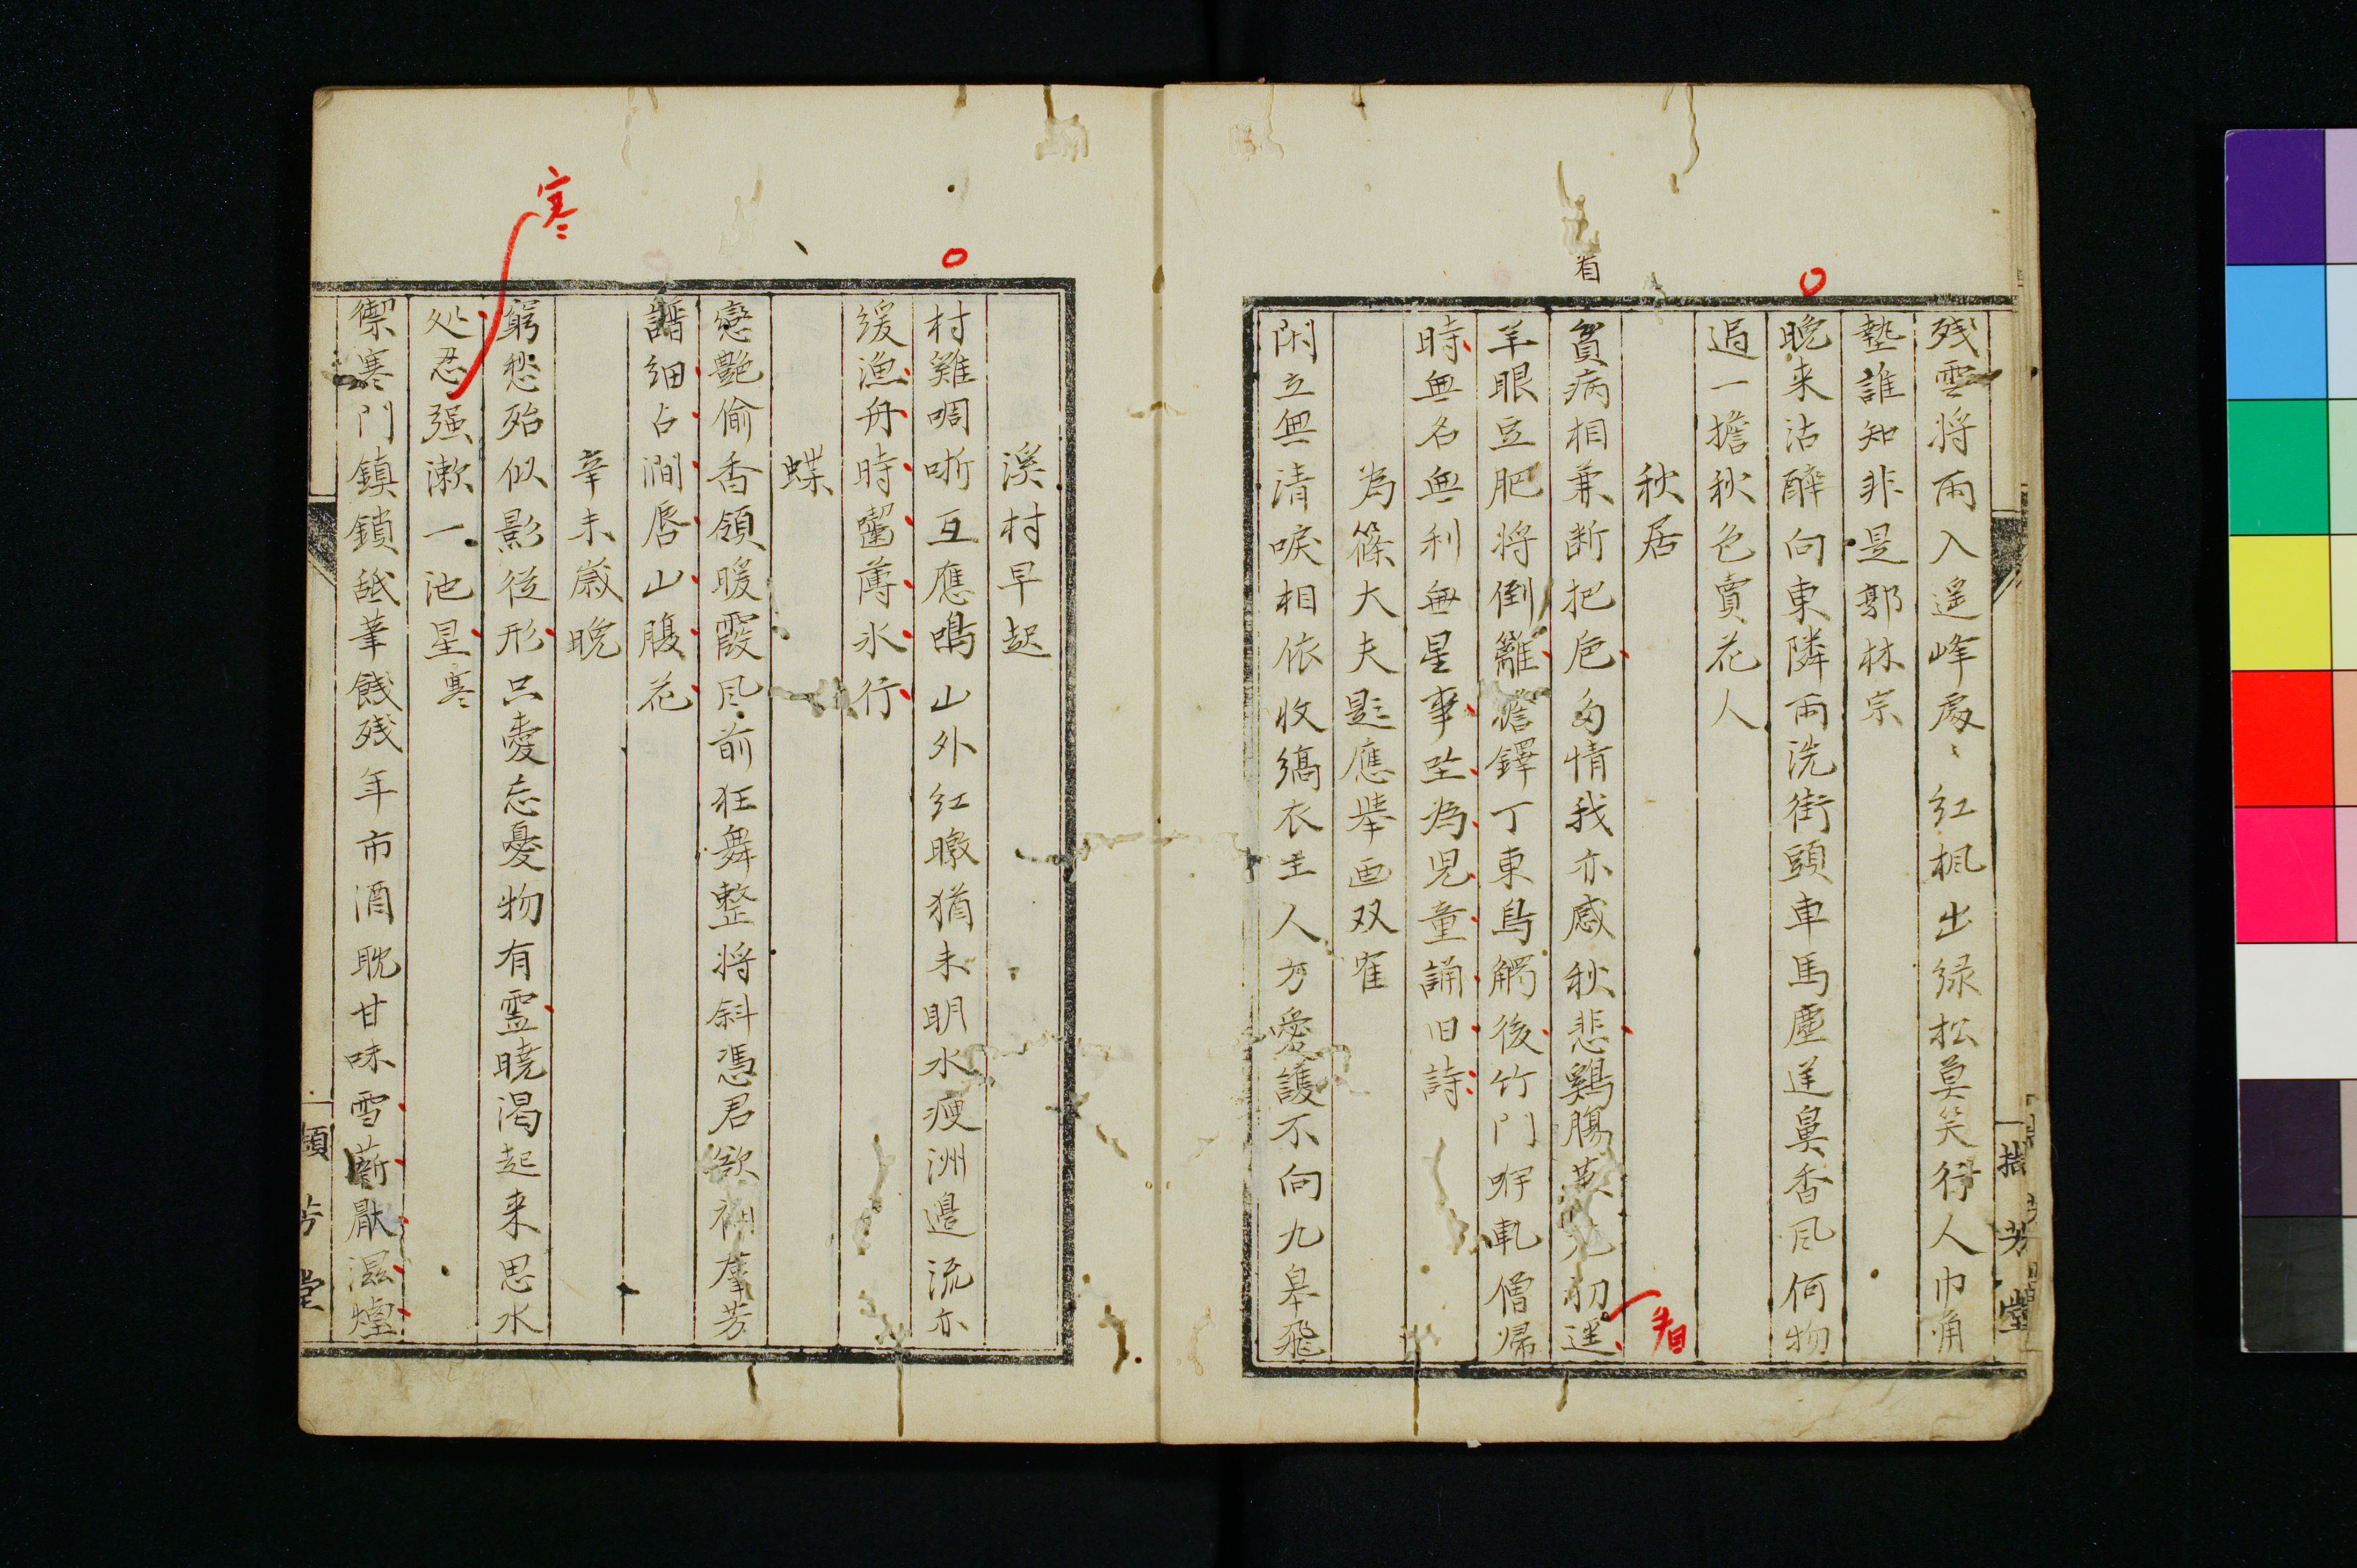 残雲将雨入遥峰處〻紅楓出緑松莫笑行人巾角
墊誰知非是郭林宗
晩来沽醉向東隣雨洗街頭車馬塵逆鼻香風何物
過一擔秋色賣花人
秋居
貧病相兼断把巵多情我亦感秋悲鷄腸英 初遥
羊眼豆肥将倒籬簷鐸丁東鳥觸後竹門咿軋僧帰
時無名無利無星事坐為児童誦旧詩
為篠大夫題應挙画双隺
閑立無清唳相依收縞衣主人方愛護不向九皐飛
溪村早起
村雞啁哳互應鳴山外紅暾猶未明水痩洲邉流亦
緩漁舟時齧薄氷行
蝶
戀艶偷香領暖霞風前狂舞整将斜憑君欲補羣芳
譜細占澗唇山腹花
辛未歳晩
窮愁殆似影従形只愛忘憂物有霊暁渇起来思水
処忍强漱一池星寒
禦寒門鎮鎖舐筆餞残年市酒耽甘味雪薪厭濕煙
寒
眉
指芳堂
芳堂